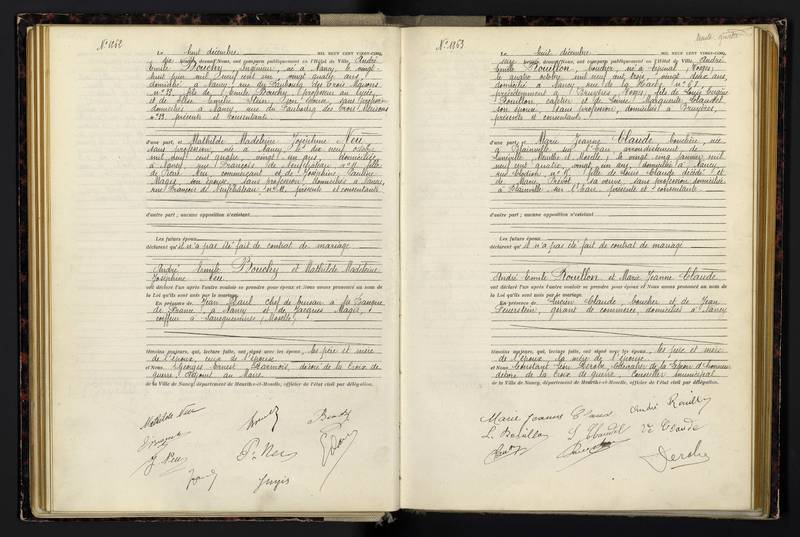 N° 1262
Le huit décembre MIL NEUF CENT VINGT-CINQ,
devant Nous, ont comparu publiquement en l'Hôtel de Ville, André
Emile Bouchy, ingénieur, né à Nancy, le vingt-
huit juin mil neuf cent un, vingt quatre ans,
domicilié à Nancy, rue du Faubourg des Trois Maisons
n° 33, fils de Emile Bouchy, professeur au lycée,
et de son épouse, sans profession,
domiciliés à Nancy, rue du Faubourg des Trois Maisons
n° 33, présents et consentants
d'une part, et Mathilde Madeleine Joséphine Neu
sans profession, née à Nancy, le dix neuf octobre
mil neuf cent quatre, vingt un ans, domiciliée
à Nancy, rue François de Neufchâteau n° 11, fille
de Neu, commerçant et de Joséphine Pauline
Magis, son épouse, sans profession, domiciliés à Nancy,
rue François de Neufchâteau, n° 11, présents et consentants
d'autre part ; aucune opposition n'existant
Les futurs époux
déclarent qu'il n'a pas été fait de contrat de mariage
André Emile Bouchy et Mathilde Madeleine
Joséphine Neu
ont déclaré l'un après l'autre vouloir se prendre pour époux et Nous avons prononcé au nom de
la Loi qu'ils sont unis par le mariage.
En présence de Jean chef de bureau à la Banque
de France, à Nancy et de Jacques Magis,
coiffeur à Sarreguemines (Moselle),
témoins majeurs, qui, lecture faite, ont signé avec les époux, les père et mère
de l'époux, ceux de l'épouse
et Nous, Georges Ernest décoré de la Croix de
guerre, Adjoint au Maire
de la Ville de Nancy, département de Meurthe-et-Moselle, officier de l'état civil par délégation.
Mathilde Neu
J. Neu
N° 1263
Le huit décembre MIL NEUF CENT VINGT-CINQ,
devant Nous, ont comparu publiquement en l'Hôtel de Ville, André
Emile Bouillon, boucher, né à Epinal, Vosges,
le quatre octobre mil neuf cent trois, vingt deux ans,
domicilié à Nancy rue de la n° 61,
précédemment à Bruyères, Vosges, fils de Louis Eugène
Bouillon, cafetier et de Louise Marguerite Claudel
son épouse, sans profession, domiciliés à Bruyères,
présents et consentants
d'une part, et Marie Jeanne Claude, bouchère, née
à Blainville sur l'Eau, arrondissement de
Lunéville, Meurthe et Moselle, le vingt cinq janvier mil
neuf cent quatre, vingt un ans, domiciliée à Nancy,
rue Clodion, fille de Louis Claude décédé et
de Marie sa veuve, sans profession, domiciliée
à Blainville sur l'Eau, présente et consentante
d'autre part ; aucune opposition n'existant
Les futurs époux
déclarent qu'il n'a pas été fait de contrat de mariage
André Emile Bouillon et Marie Jeanne Claude
ont déclaré l'un après l'autre vouloir se prendre pour époux et Nous avons prononcé au nom de
la Loi qu'ils sont unis par le mariage.
En présence de Lucien Claude, boucher et de Jean
Feuerstein, gérant de commerce, domiciliés à Nancy
témoins majeurs, qui, lecture faite, ont signé avec les époux, les père et mère
de l'époux, la mère de l'épouse
et Nous, Constant Léon Chevalier de la Légion d'honneur
décoré de la Croix de guerre, Conseiller municipal
de la Ville de Nancy, département de Meurthe-et-Moselle, officier de l'état civil par délégation.
Marie Jeanne Claude André Bouillon
L. Bouillon L. Claudel Vve Claude